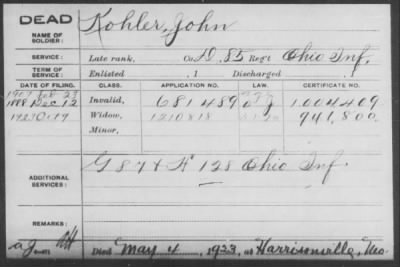 DEAD
NAME OF SOLDIER: Kohler, John
SERVICE: Late rank, Co. D. 85 Reg't Ohio Inf.
TERM OF SERVICE: Enlisted , 1 Discharged , 1
DATE OF FILING. CLASS. APPLICATION NO. LAW. CERTIFICATE NO.
1888 Dec 12 Invalid, 681489 1004409
1923 Oct 19 Widow, 1210818 941,800
Minor,
ADDITIONAL SERVICES: G 87 & H 128 Ohio Inf.
REMARKS:
Died May 4, 1923, at Harrisonville, Mo.